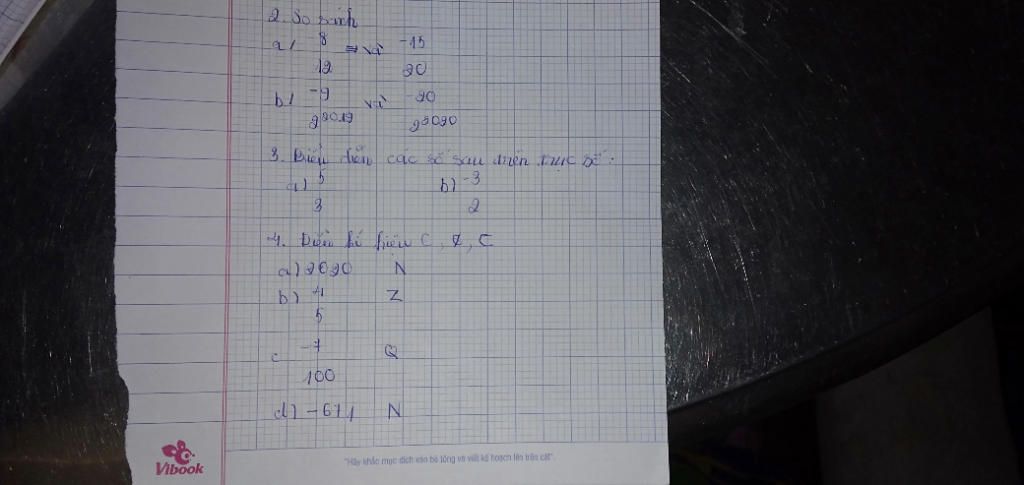 2. So sánh
a) 8 và -15
12 20
b) -9 và -20
2²⁰¹⁹ 2²⁰²⁰
3. Biểu diễn các số sau trên trục số:
a) 5 b) -3
3 2
4. Điền kí hiệu ⊂, ∉, ∈
a) 2020 N
b) 4 Z
5
c -7 Q
100
d) -671 N
Vibook
"Hãy khắc mục đích vào bê tông và viết kế hoạch lên trên cát".